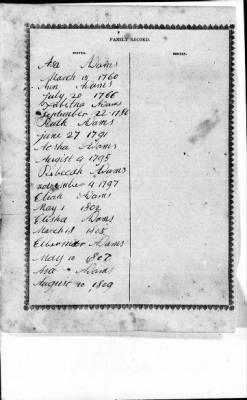 FAMILY RECORD.
BIRTHS. BIRTHS.
Asa Adams
March 13 1760
Ann Adams
July 20 1766
Tabitha Adams
September 22 1786
Ruth Adams
June 27 1791
Adams
August 9 1795
Rebecah Adams
november 4 1797
Eliah Adams
May 1 1802
Elisha Adams
March 18 1805
Ebenezer Adams
May 10 1807
Asa Adams
August 10 1809